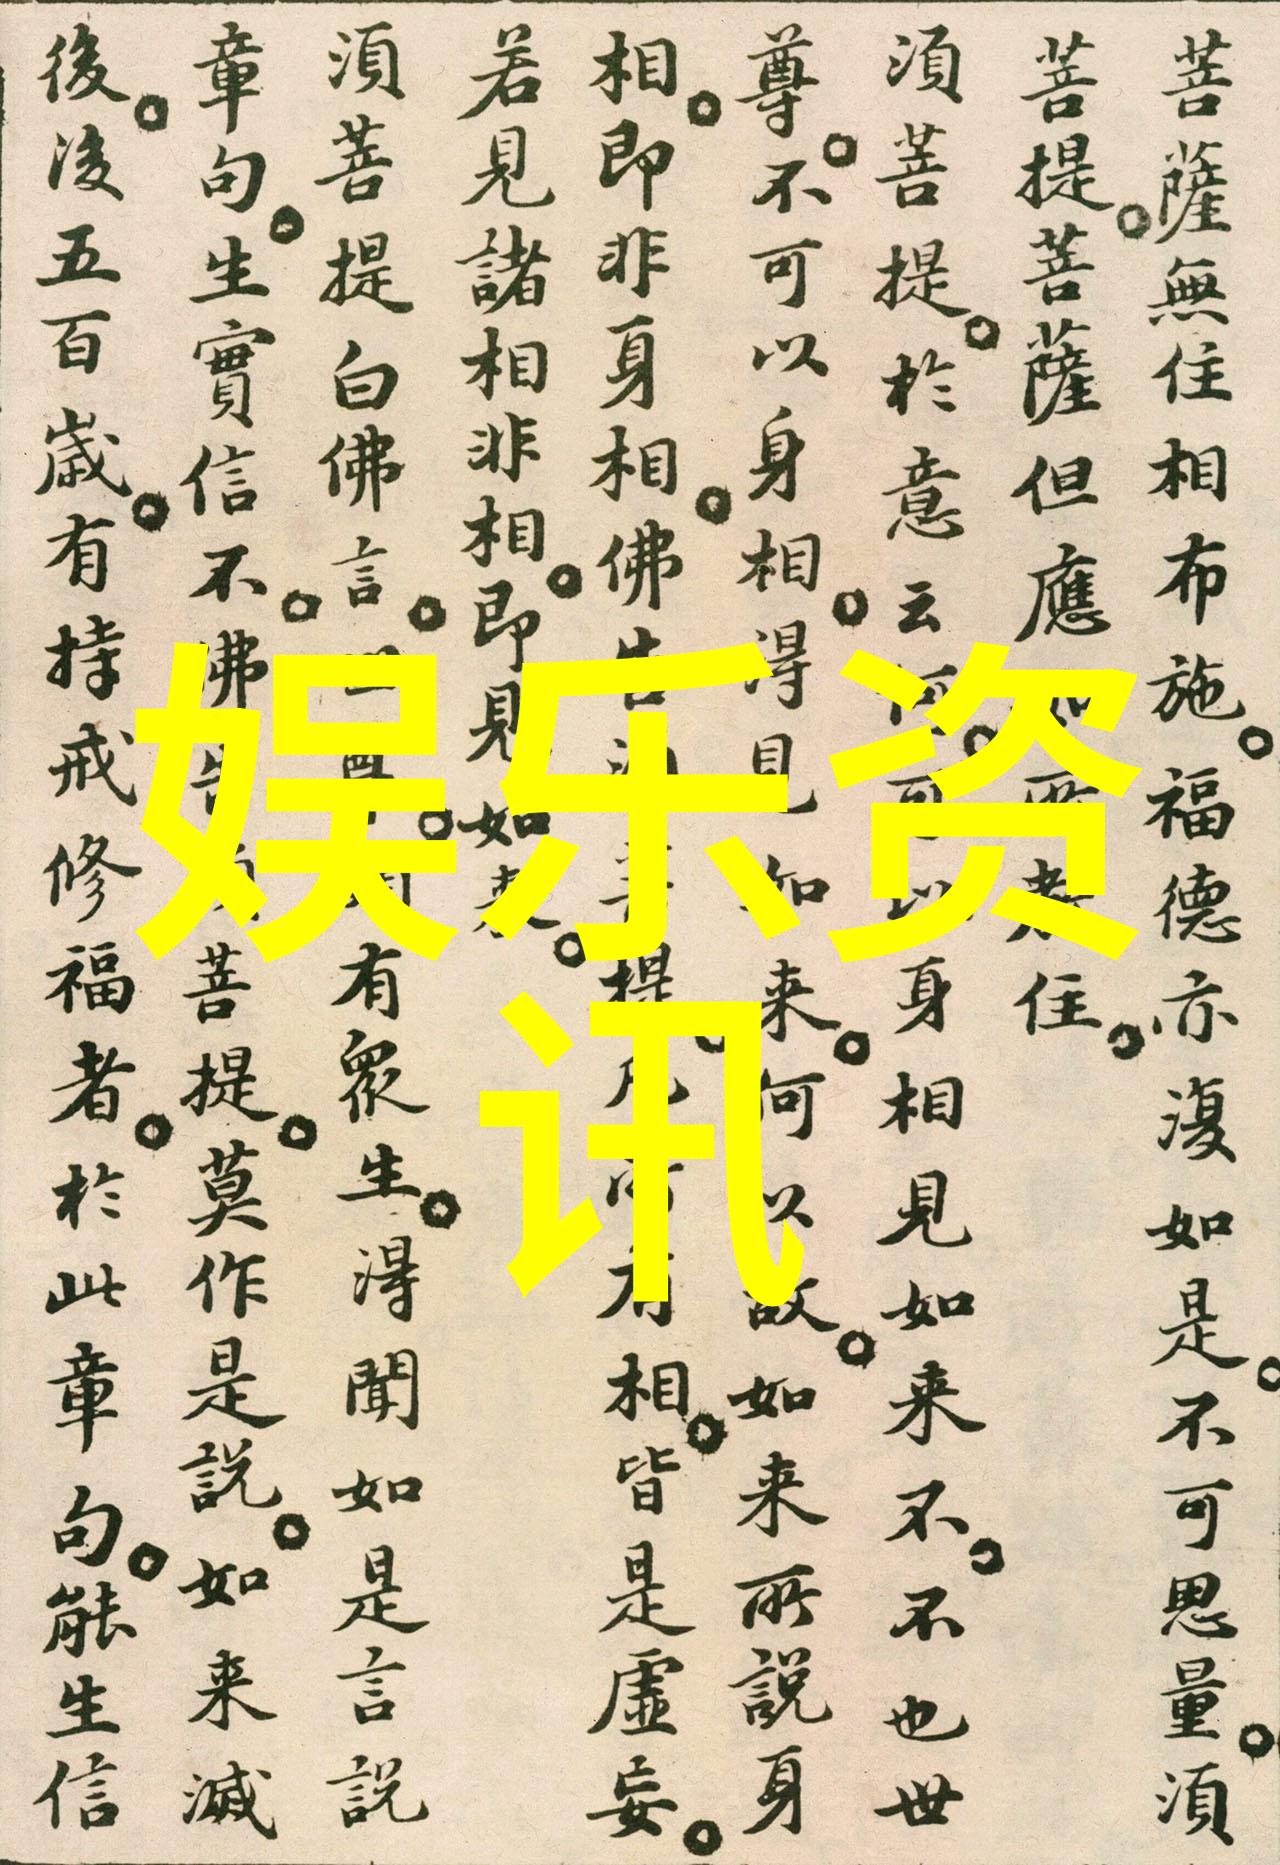 菩薩無住相布施。福德亦復如是不可思量。須
菩提。菩薩但應如所教住。
須菩提。於意云何。可以身相見如来不。不也世
尊。不可以身相。得見如来。何以故。如来所說身
相。即非身相。佛告須菩提。凡所有相。皆是虛妄。
若見諸相非相。即見如来。
須菩提白佛言。世尊。有眾生。得聞如是言說
章句。生實信不。佛告須菩提。莫作是說。如来滅
後。後五百歲。有持戒修福者。於此章句。能生信
娱乐资
讯